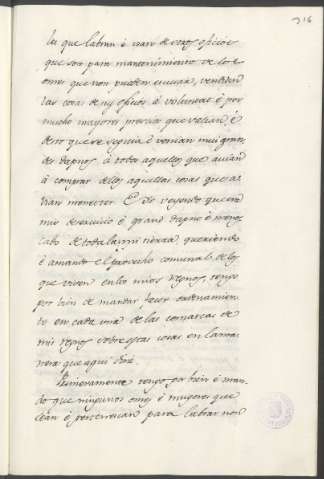 316
los que labran é usan de otros oficios
que son para mantenimiento de los
omes que non pueden escusar, vendian
las cosas de sus oficios á voluntad é por
muchos mayores precios que valian, é
desto que se seguia é venian mui gran-
des dapnos á todos aquellos que avian
á comprar dellos aquellas cosas que a-
vian menester. E Yo veyendo que era
mio deservicio é grand dapno é menos
cabo de toda la mi tierra, queriendo
é amando el provecho comunal de los
que viven en los mios regnos, tengo
por bien de mandar facer ordenamien-
to en cada una de las comarcas de
mis regnos sobre estas cosas en la ma-
nera que aqui dirá.
Primeramente tengo por bien é man-
do que ningunos omes é mugeres que
sean é pertenescan para labrar non